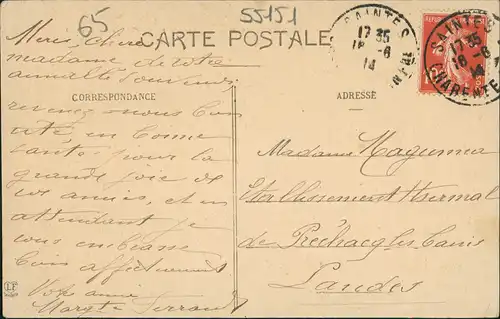 65
55151
CARTE POSTALE
SAINTES
17 35
18 -6
14
SAINTES
17 35
18 -6
14
CHARENTE
Merci, chère
madame de votre
annuelle souvenir
CORRESPONDANCE
ADRESSE
revenez-nous bien
vite en bonne
santé pour la
grande joie de
vos amies, et en
attendant je
vous embrasse
bien affectueusement
Votre amie
Margte
Madame
Etablissement thermal
de Préchacq les bains
Landes